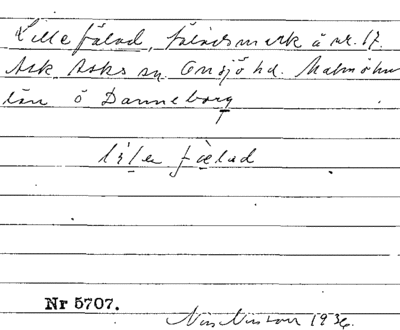 Lille fälad, fäladsmark å nr. 17.
Ask Asks sn. Onsjö hd. Malmöhus
län ö Danneborg
lilen fælad
Nr 5707.
Nils Nilsson 1936.